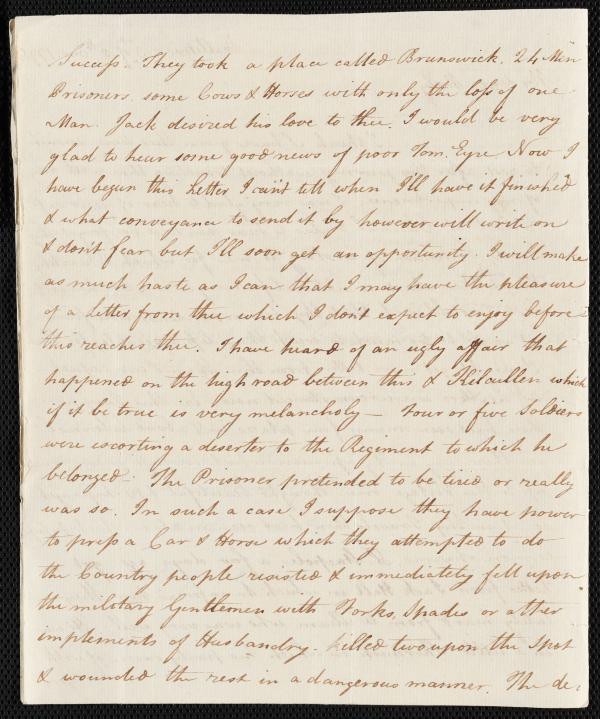 Success. They took a place called Brunswick. 24 Men
Prisoners some Cows & Horses with only the loss of one
Man. Jack desired his love to thee. I would be very
glad to hear some good news of poor Tom. Eyre Now I
have begun this Letter I can't tell when I'll have it finished
& what conveyance to send it by however will write on
& don't fear but I'll soon get an opportunity. I will make
as much haste as I can that I may have the pleasure
of a Letter from thee which I don't expect to enjoy before
this reaches thee. I have heard of an ugly affair that
happened on the high road between this & Kilcullen which
if it be true is very melancholy — Four or five Soldiers
were escorting a deserter to the Regiment to which he
belonged. The Prisoner pretended to be tired or really
was so. In such a case I suppose they have power
to press a Car & Horse which they attempted to do
the Country people resisted & immediately fell upon
the military Gentlemen with Forks, Spades or other
implements of Husbandry. killed two upon the Spot
& wounded the rest in a dangerous manner. The de,